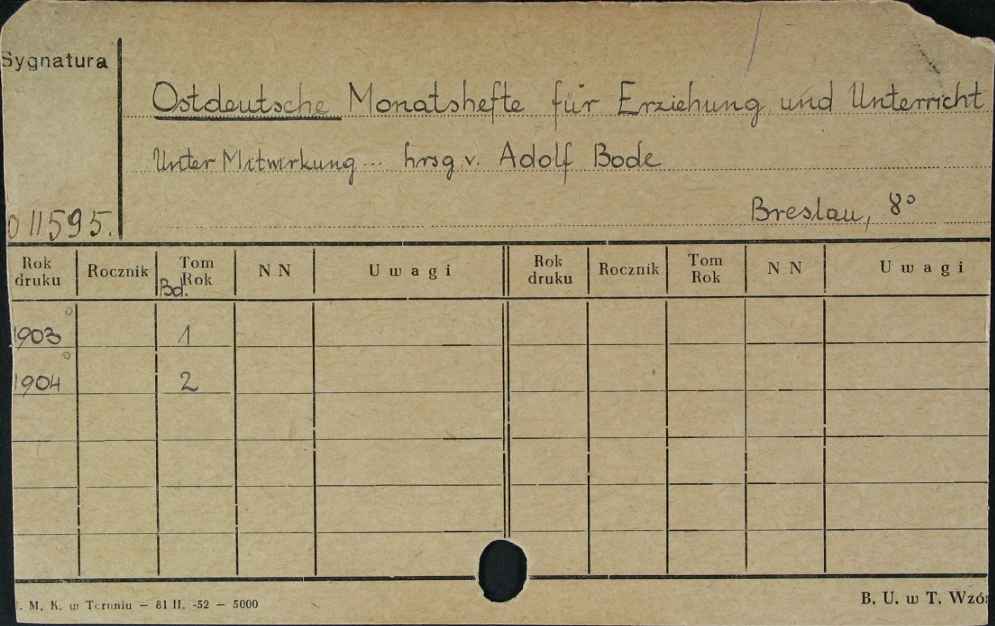 Sygnatura
Ostdeutsche Monatshefte für Erziehung und Unterricht
Unter Mitwirkung ... hrsg v. Adolf Bode
Breslau, 8°
011595.
Rok druku Rocznik Tom Rok NN Uwagi Rok druku Rocznik Tom Rok NN Uwagi
Bd.
1903° 1
1904° 2
. M. K. w Toruniu — 81 II. -52 — 5000
B. U. w T. Wzór